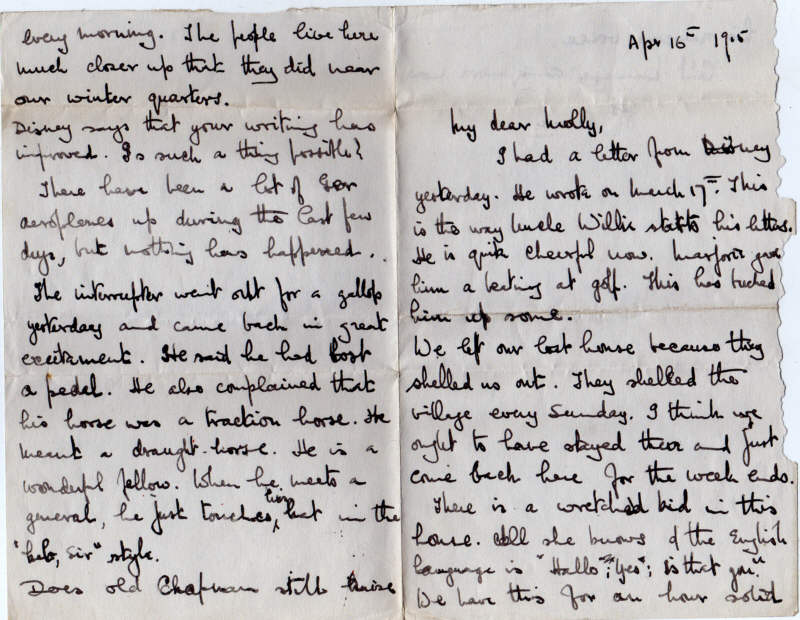 Apr 16th 1915
My dear Molly,
I had a letter from Disney
yesterday. He wrote on March 17th. This
is the way Uncle Willie starts his letters.
He is quite cheerful now. Marjorie gave
him a beating at golf. This has bucked
him up some.
We left our last house because they
shelled us out. They shelled the
village every Sunday. I think we
ought to have stayed there and just
come back here for the week ends.
There is a wretched kid in this
house. All she knows of the English
language is "Hallo"; "Yes"; "is that you".
We have this for an hour solid
every morning. The people live here
much closer up that they did near
our winter quarters.
Disney says that your writing has
improved. Is such a thing possible?
There have been a lot of Ger
aeroplanes up during the last few
days, but nothing has happened..
The interrupter went out for a gallop
yesterday and came back in great
excitement. He said he had lost
a pedal. He also complained that
his horse was a traction horse. He
meant a draught-horse. He is a
wonderful fellow. When he meets a
general, he just touches his hat in the
"helo, Sir" style.
Does old Chapman still